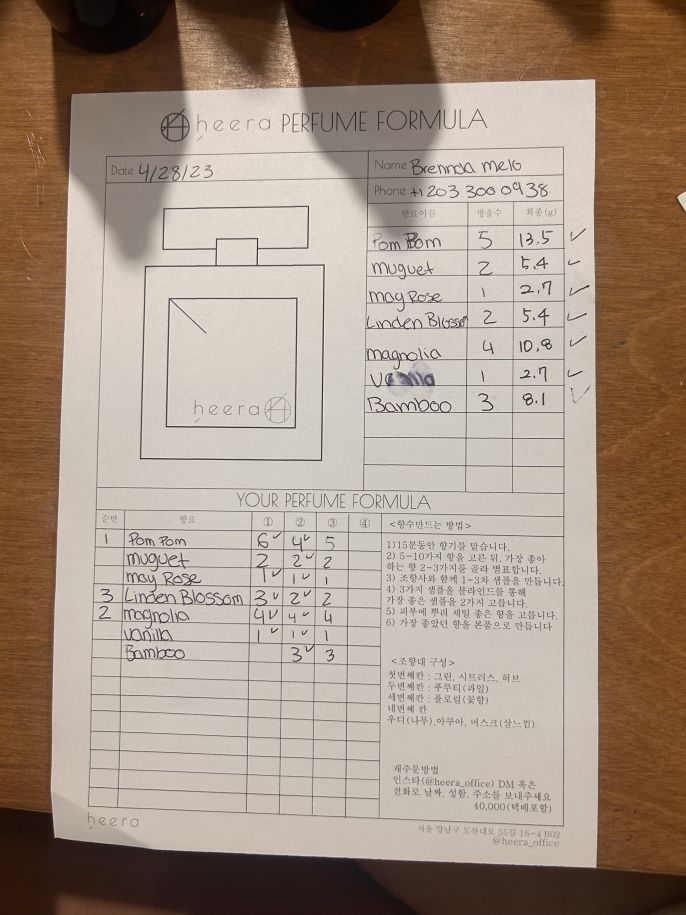 heera PERFUME FORMULA
Date 4/28/23
Name Brennda melo
Phone +1 203 300 0938
향료이름 방울수 최종(g)
Pom Bom 5 13.5 ✓
muguet 2 5.4 ✓
may Rose 1 2.7 ✓
Linden Blossom 2 5.4 ✓
magnolia 4 10.8 ✓
Vanilla 1 2.7 ✓
Bamboo 3 8.1 ✓
heera
YOUR PERFUME FORMULA
순번 향료 ① ② ③ ④
1 Pom Pom 6✓ 4✓ 5
muguet 2 2✓ 2
may Rose 1✓ 1✓ 1
3 Linden Blossom 3✓ 2✓ 2
2 magnolia 4✓ 4✓ 4
vanilla 1✓ 1✓ 1
Bamboo 3✓ 3
<향수만드는 방법>
1)15분동안 향기를 맡습니다.
2) 5-10가지 향을 고른 뒤, 가장 좋아
하는 향 2-3가지를 골라 별표합니다.
3) 조향사와 함께 1~3차 샘플을 만듭니다.
4) 3가지 샘플을 블라인드를 통해
가장 좋은 샘플을 2가지 고릅니다.
5) 피부에 뿌려 제일 좋은 향을 고릅니다.
6) 가장 좋았던 향을 본품으로 만듭니다
<조향대 구성>
첫번째칸 : 그린, 시트러스, 허브
두번째칸 : 푸루티(과일)
세번째칸 : 플로럴(꽃향)
네번째 칸
우디(나무),아쿠아, 머스크(살느낌)
재주문방법
인스타(@heera_office) DM 혹은
전화로 날짜, 성함, 주소를 보내주세요
40,000(택배포함)
heera
서울 강남구 도산대로 55길 16-4 B02
@heera_office